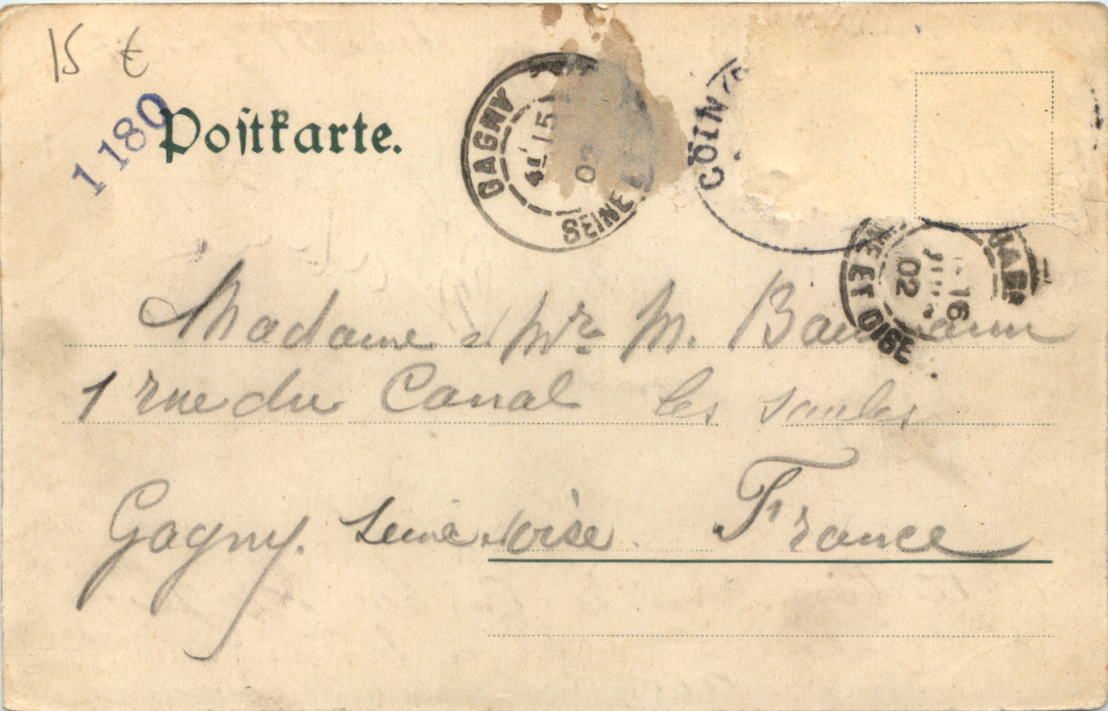 15 €
1180
Postkarte.
GAGNY SEINE ET
15
02
COIN
16
02
ET OISE
Madame & Mr M. Baumann
1 rue du Canal les saules
Gagny. Seine & oise. France